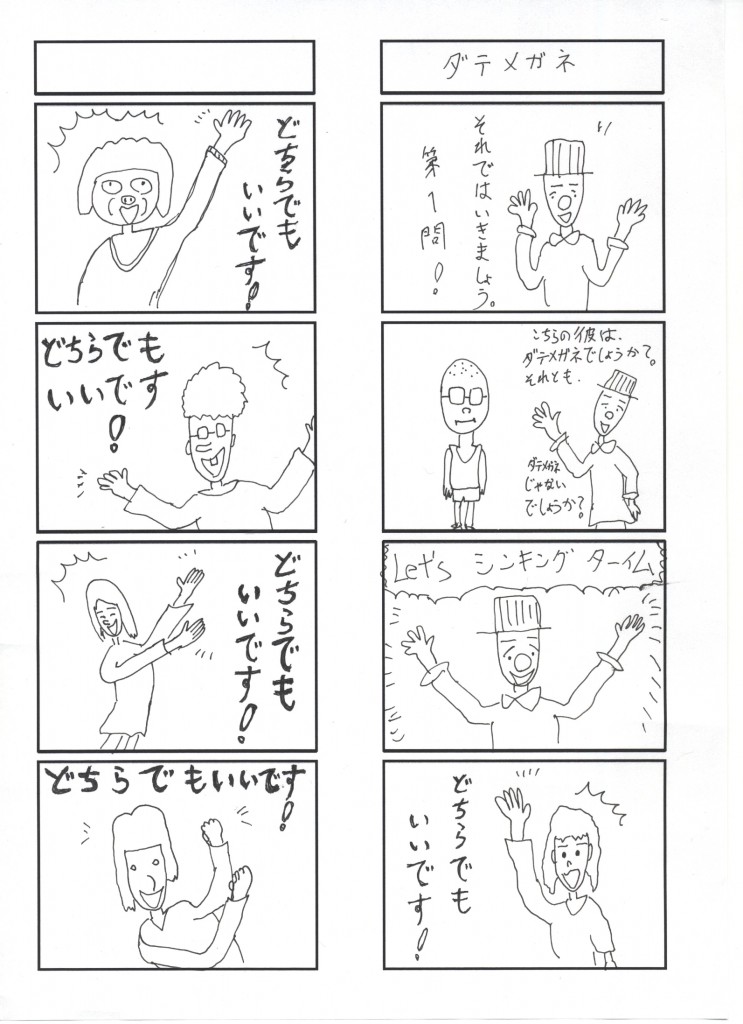 ダテメガネ
それではいきましょう。
第1問!
こちらの彼は、
ダテメガネでしょうか?。
それとも、
ダテメガネ
じゃない
でしょうか?
Let's シンキング ターイム
どちらでも
いいです!
どちらでも
いいです!
どちらでも
いいです
!
どちらでも
いいです!
どちらでもいいです!